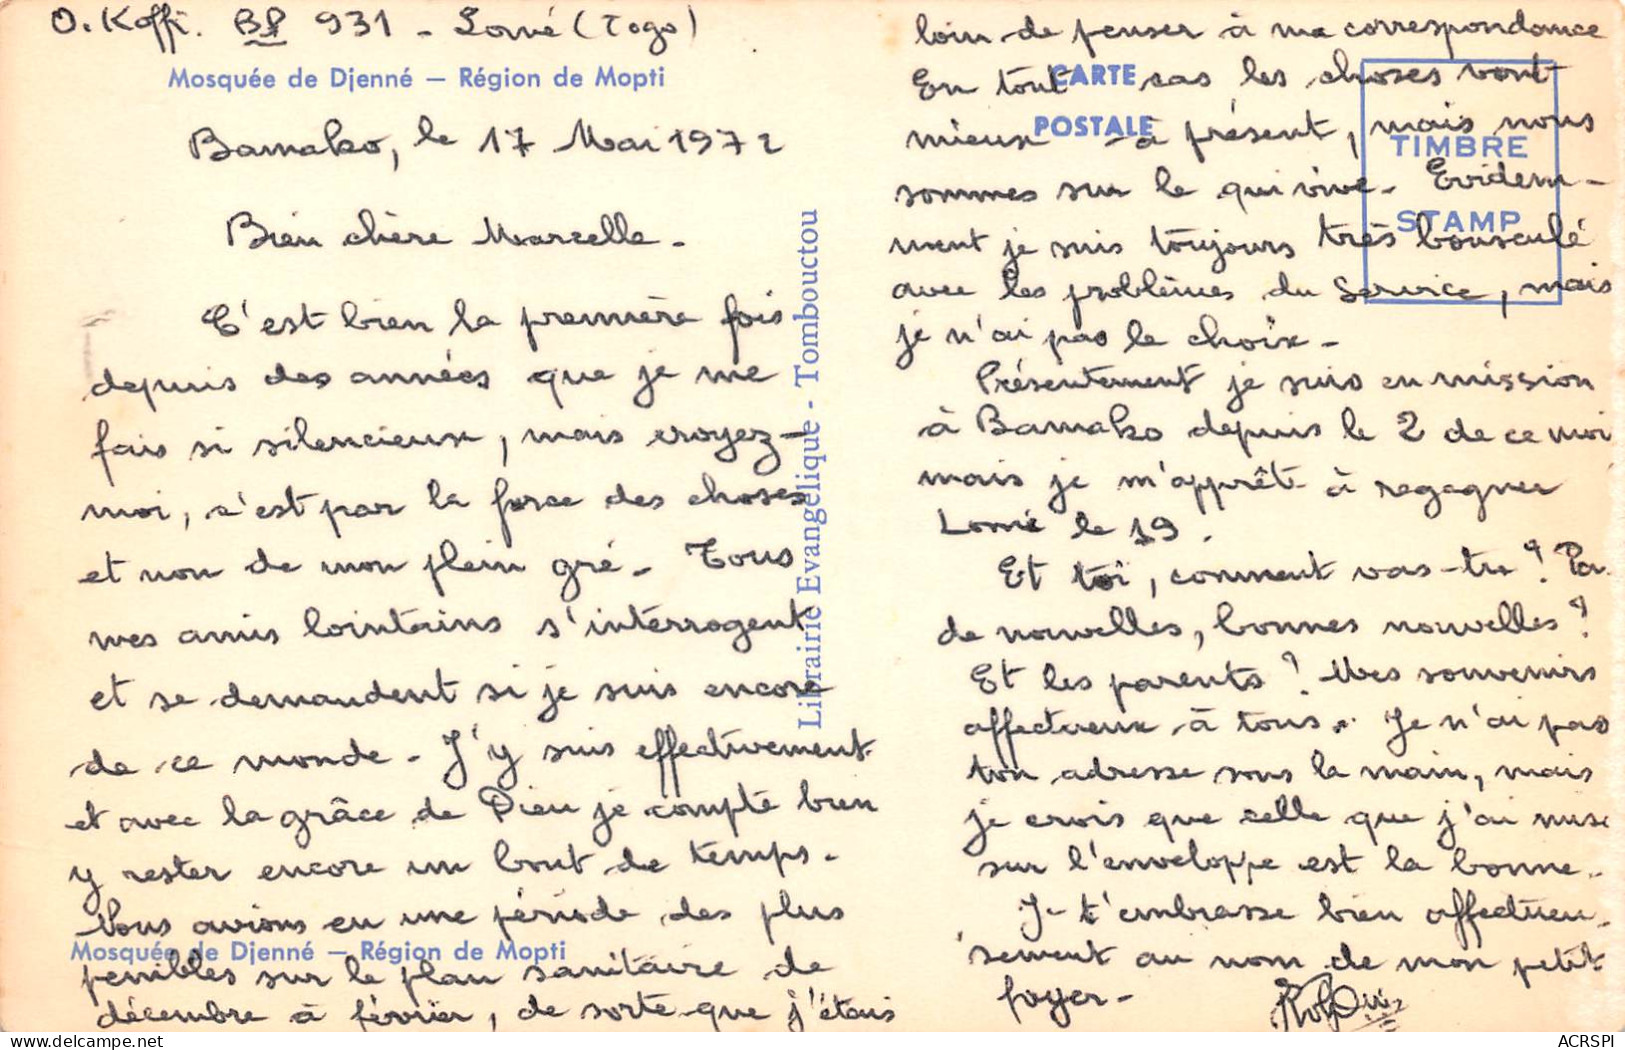 O. Koffi. BP 931 - Lomé (Togo)
Mosquée de Djenné — Région de Mopti
Bamako, le 17 Mai 1972
Bien chère Marcelle.
C'est bien la première fois
depuis des années que je me
fais si silencieux, mais croyez-
moi, c'est par la force des choses
et non de mon plein gré. Tous
mes amis lointains s'interrogent
et se demandent si je suis encore
de ce monde. J'y suis effectivement
et avec la grâce de Dieu je compte bien
y rester encore un bout de temps.
Nous avions eu une période des plus
Mosquée de Djenné — Région de Mopti
penibles sur le plan sanitaire de
décembre à février, de sorte que j'étais
Librairie Evangélique - Tombouctou
loin de penser à ma correspondance
CARTE
POSTALE
TIMBRE
STAMP
En tout cas les choses vont
mieux à présent, mais nous
sommes sur le qui vive. Evidem-
ment je suis toujours très bousculé
avec les problèmes du Service, mais
je n'ai pas le choix.
Présentement je suis en mission
à Bamako depuis le 2 de ce moi
mais je m'apprêt à regagner
Lomé le 19.
Et toi, comment vas-tu? Pa
de nouvelles, bonnes nouvelles?
Et les parents? Mes souvenirs
affectueux à tous. Je n'ai pas
ton adresse sous la main, mais
je crois que celle que j'ai mise
sur l'enveloppe est la bonne.
Je t'embrasse bien affectueu-
sement au nom de mon petit
foyer.
ACRSPI